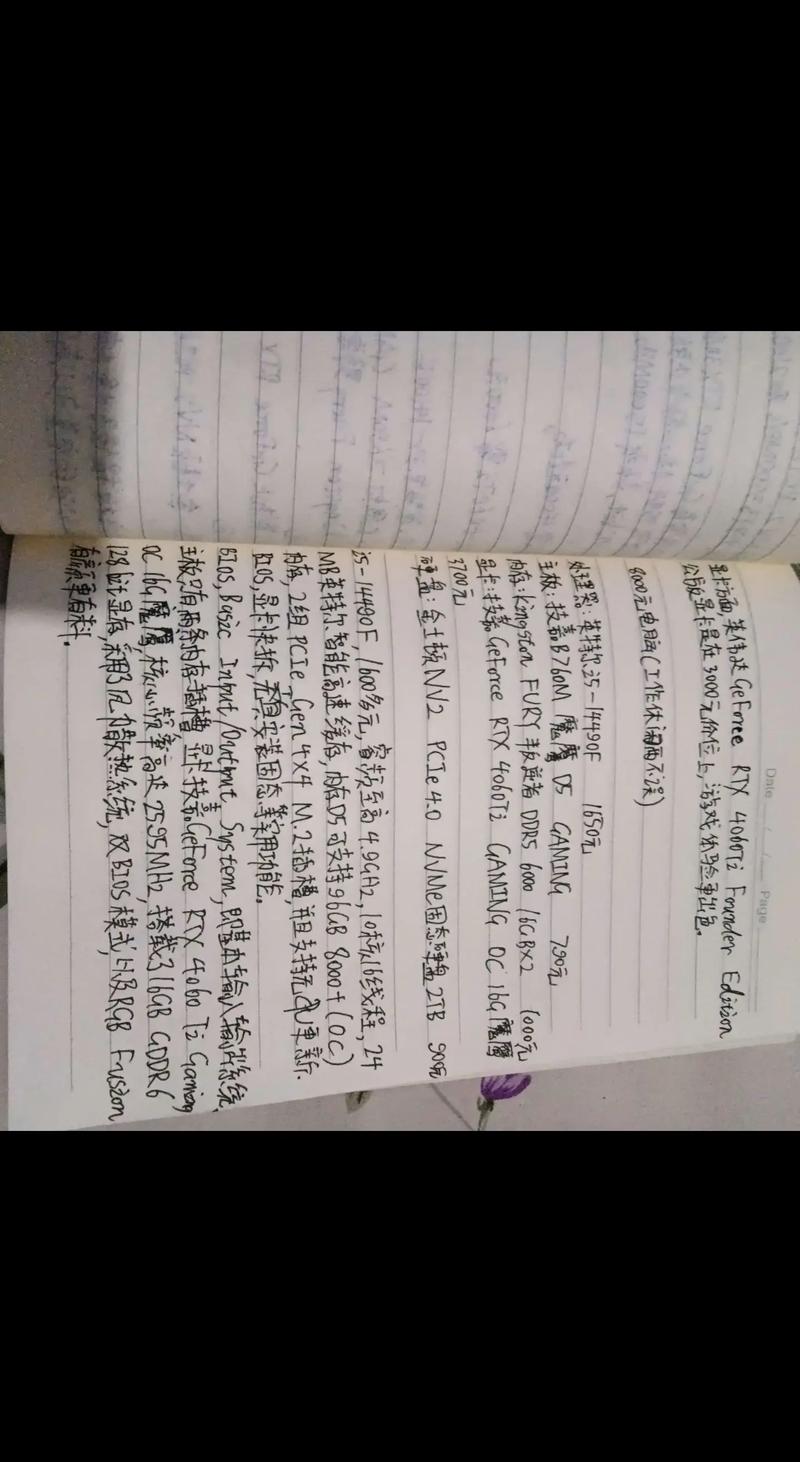 Date
Page
显卡方面，英伟达GeForce RTX 4060Ti Founder Edition
公版显卡是在3000元价位上，游戏体验更出色。
8000元电脑（工作休闲两不误）
处理器：英特尔i5-14490F 1650元
主板：技嘉B760M 魔鹰 D5 GAMING 790元
内存：Kingston FURY 叛逆者 DDR5 6000 16GB×2 1000元
显卡：技嘉GeForce RTX 4060Ti GAMING OC 16G魔鹰
3700元
硬盘：金士顿NV2 PCIe 4.0 NVMe固态硬盘 2TB 900元
i5-14490F，1600多元，睿频至高4.9GHz，10核16线程，24
MB英特尔智能高速缓存，内存D5可支持96GB 8000+（OC）
内存，2组PCIe Gen4×4 M.2插槽，并且支持无U更新
BIOS，显卡快拆，无工具安装固态等实用功能。
BIOS，Basic Intput/Output System，即基本输入输出系统，
主板只有两条内存插槽，显卡技嘉GeForce RTX 4060 Ti Gaming
OC 16G魔鹰，核心频率高达2595MHz，搭载了16GB GDDR6
128bit显存，采用3风扇散热系统，双BIOS模式，以及RGB Fusion
有颜更有料。